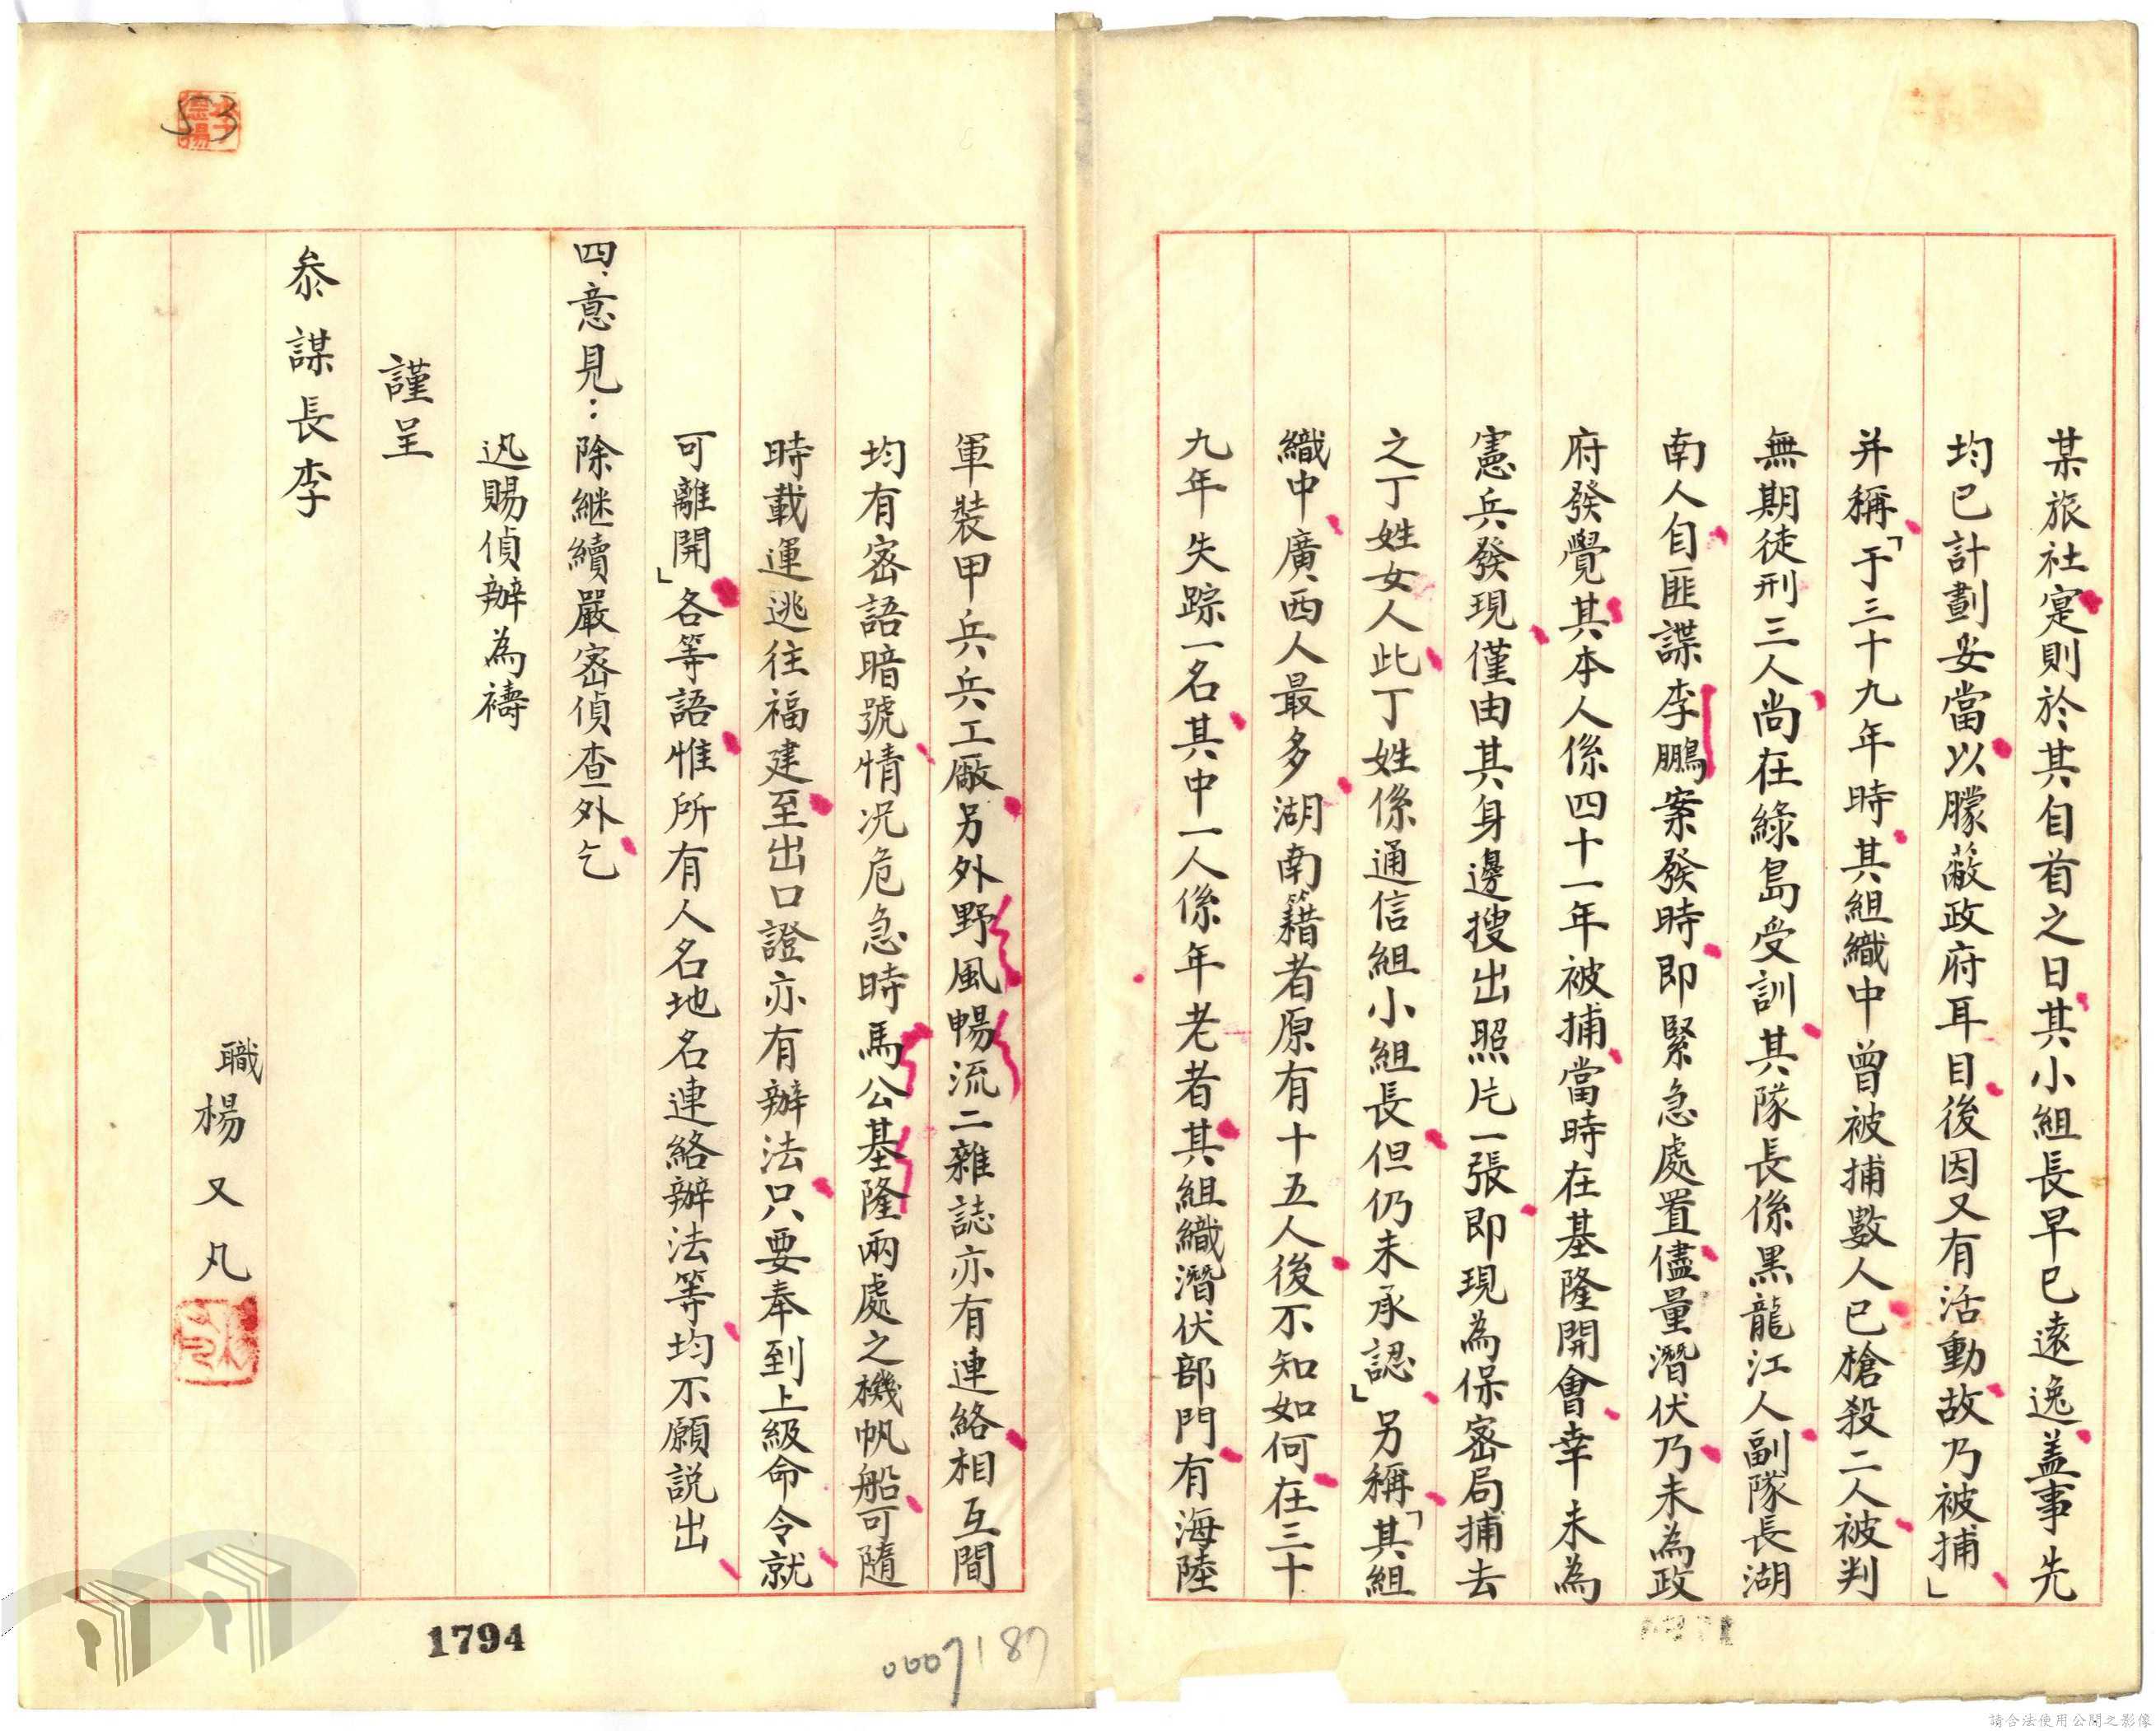 某旅社寔則於其自首之日其小組長早已遠逸盖事先
均已計劃妥當以矇蔽政府耳目後因又有活動故乃被捕」
并稱「于三十九年時其組織中曾被捕數人已槍殺二人被判
無期徒刑三人尚在綠島受訓其隊長係黑龍江人副隊長湖
南人自匪諜李鵬案發時即緊急處置儘量潛伏乃未為政
府發覺其本人係四十一年被捕當時在基隆開會幸未為
憲兵發現僅由其身邊搜出照片一張即現為保密局捕去
之丁姓女人此丁姓係通信組小組長但仍未承認」另稱「其組
織中廣西人最多湖南籍者原有十五人後不知如何在三十
九年失踪一名其中一人係年老者其組織潛伏部門有海陸
軍裝甲兵兵工廠另外野風暢流二雜誌亦有連絡相互間
均有密語暗號情況危急時馬公基隆兩處之機帆船可隨
時載運逃往福建至出口證亦有辦法只要奉到上級命令就
可離開」各等語惟所有人名地名連絡辦法等均不願説出
四、意見：除継續嚴密偵查外乞
迅賜偵辦為禱
謹呈
叅謀長李
職楊又凡
53
1794
0007187
請合法使用公開之影像